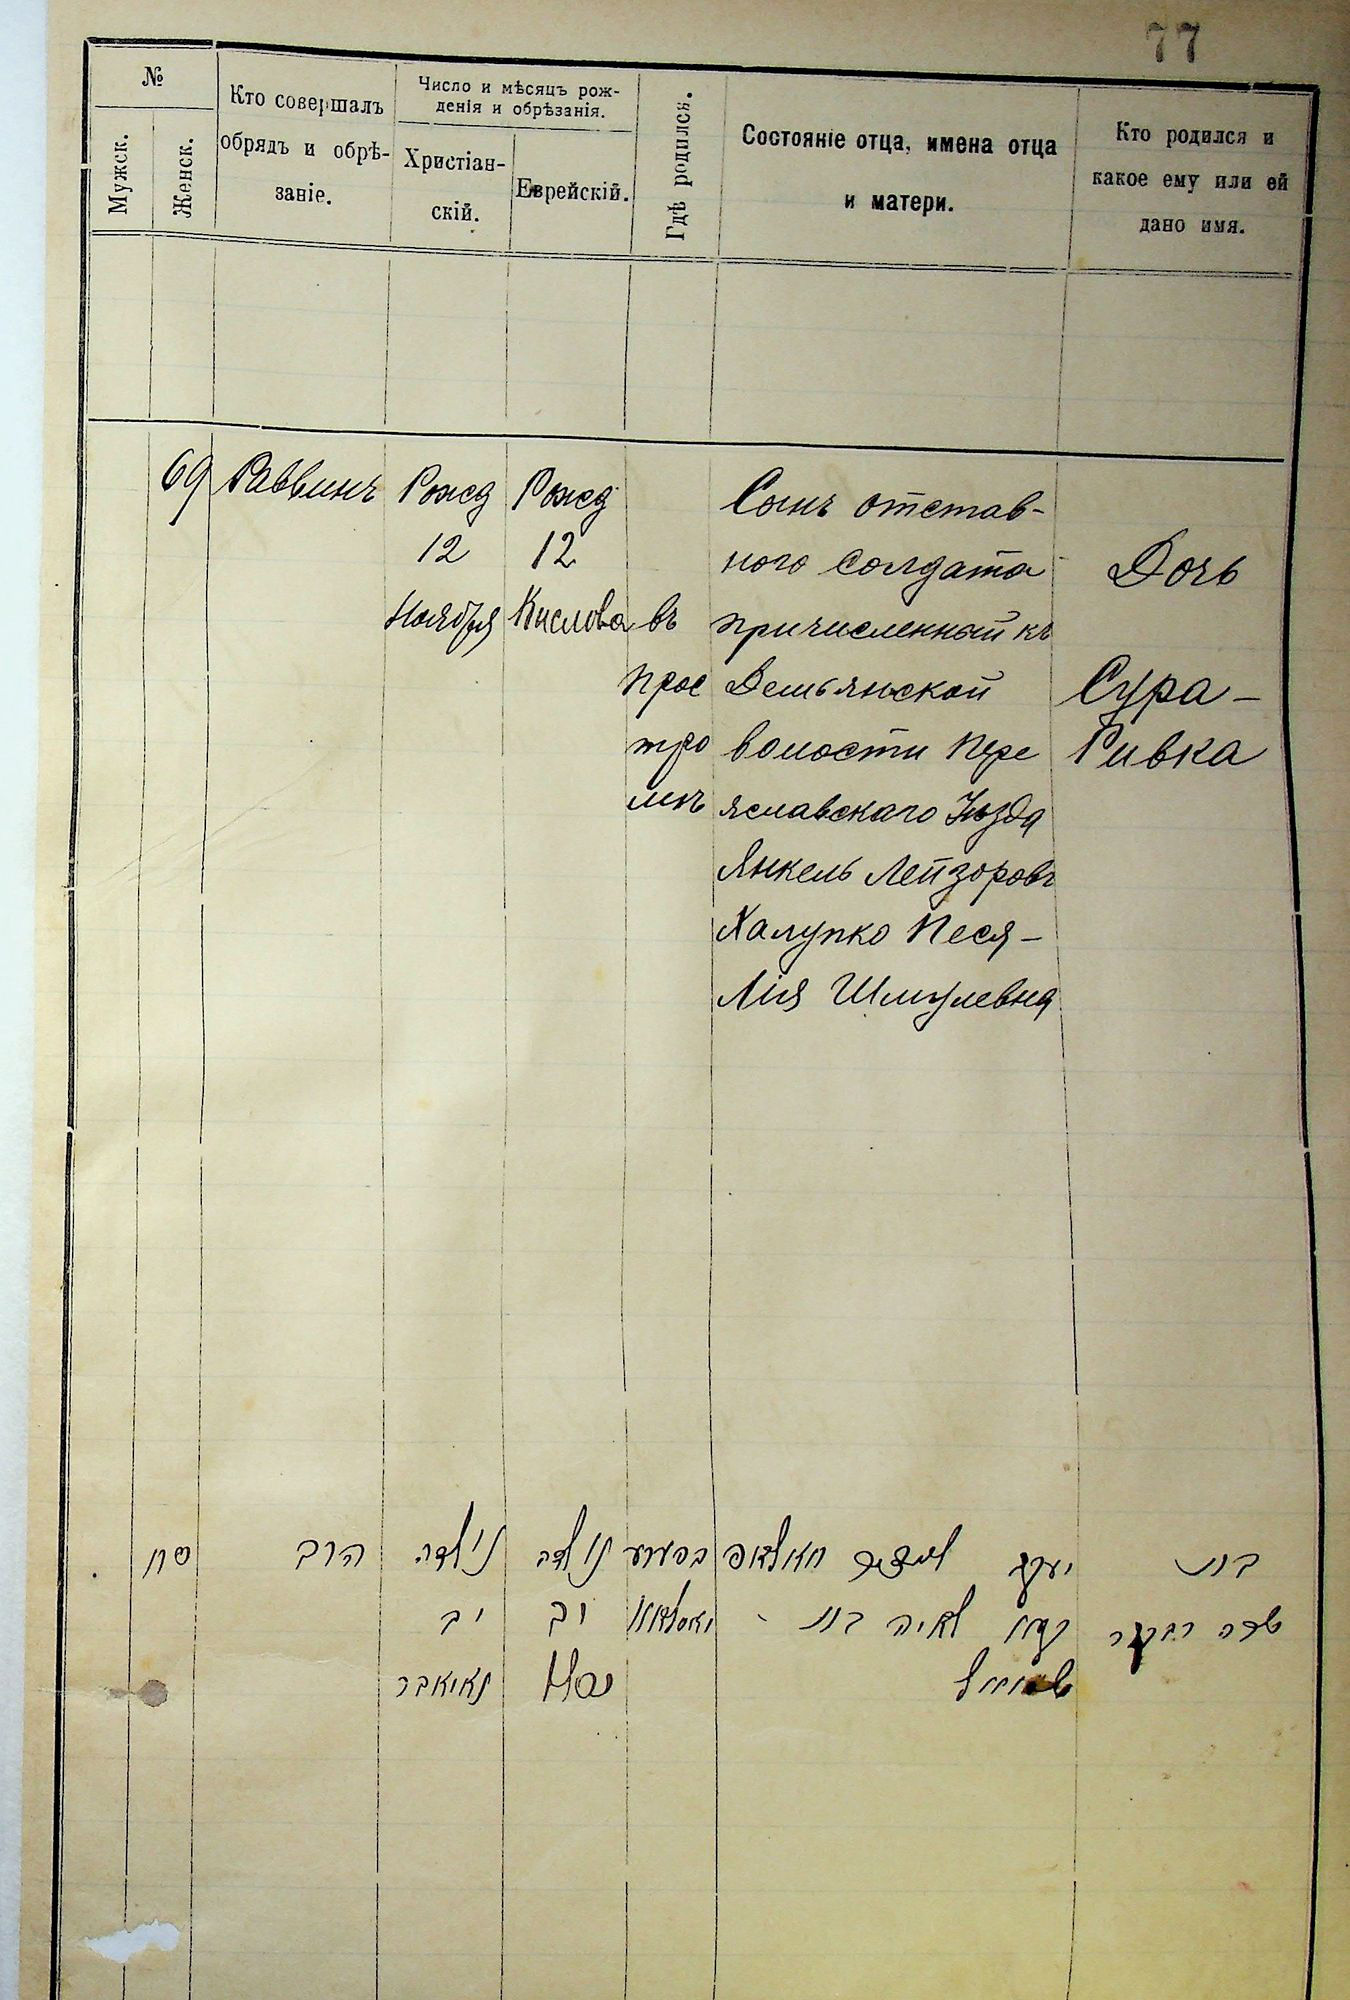 77
№
Мужск.
Женск.
Кто совершалъ
обрядъ и обрѣ-
заніе.
Число и мѣсяцъ рож-
денія и обрѣзанія.
Христіан-
скій.
Еврейскій.
Гдѣ родился.
Состояніе отца, имена отца
и матери.
Кто родился и
какое ему или ей
дано имя.
69
Раввинъ
Рожд
12
Ноября
Рожд
12
Кислова
въ
Сынъ отстав-
ного солдата
причисленный къ
Демьянской
волости Пере
яславскаго Уѣзда
Янкель Лейзоровъ
Халупко Песя-
Лія Шмулевна
Дочь
Сура-
Ривка
הרב
נולדה
יב
נאיאבר
נולדה
יב
כסלו
יעקב
לאיה בת
שמואל
בת
שרה רבקה